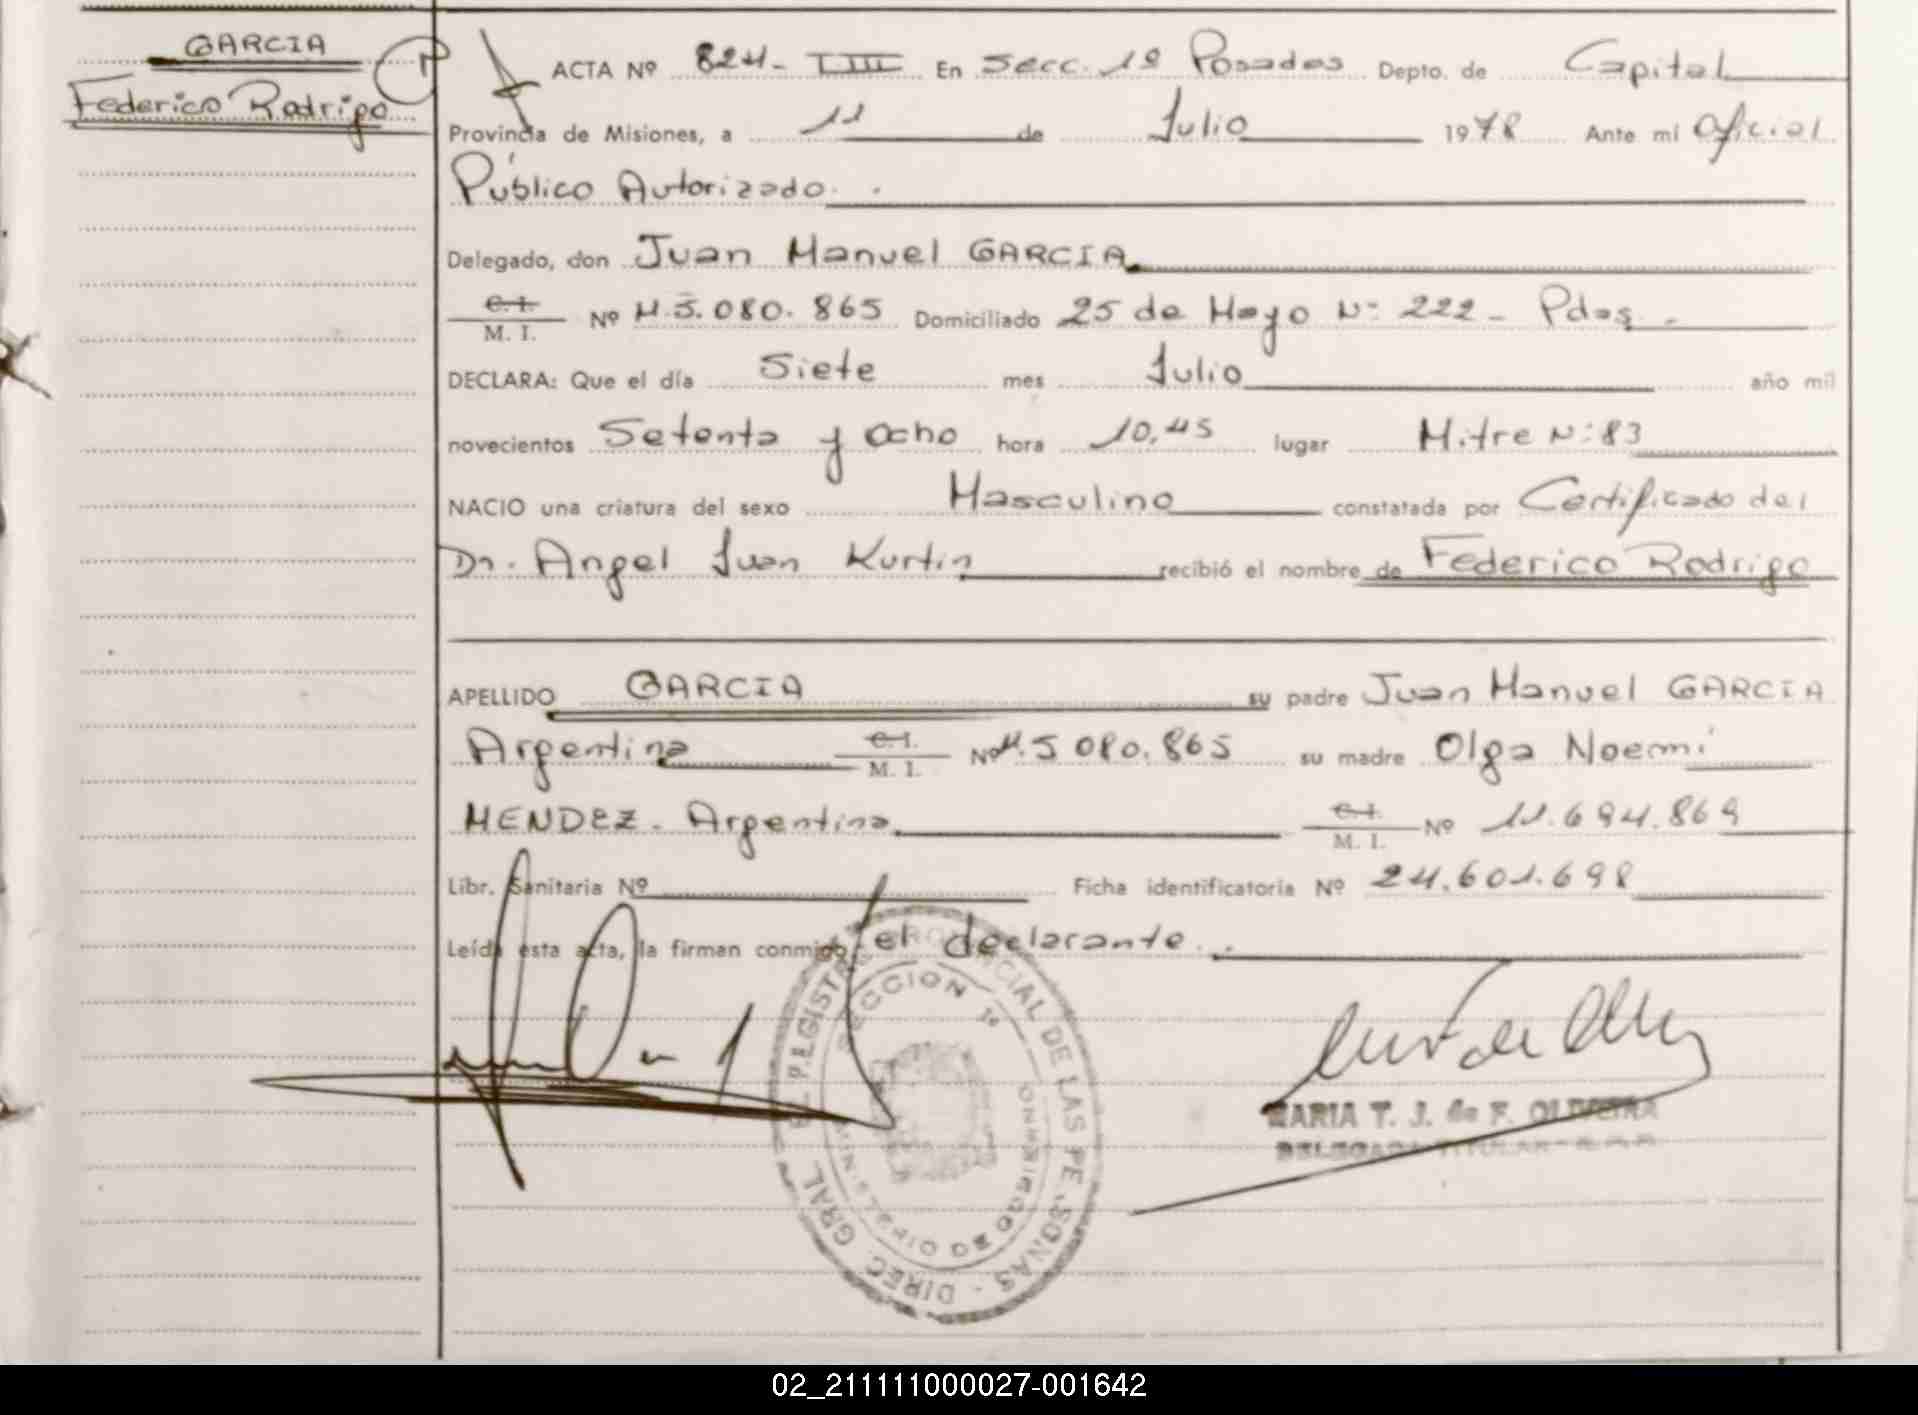 GARCIA
Federico Rodrigo
ACTA Nº 824- TIII En Secc. 1º Posadas Depto. de Capital
Provincia de Misiones, a 11 de Julio 1978 Ante mi Oficial
Público Autorizado.
Delegado, don Juan Manuel GARCIA
C. I.
M. I. Nº M.5.080.865 Domiciliado 25 de Mayo Nº 222- Pdas.-
DECLARA: Que el día Siete mes Julio año mil
novecientos Setenta y Ocho hora 10,45 lugar Mitre Nº 83
NACIO una criatura del sexo Masculino constatada por Certificado del
Dr. Angel Juan Kurtin recibió el nombre de Federico Rodrigo
APELLIDO GARCIA su padre Juan Manuel GARCIA
Argentino C. I.
M. I. Nº M.5.080.865 su madre Olga Noemí
MENDEZ. Argentina C. I.
M. I. Nº 11.694.869
Libr. Sanitaria Nº Ficha identificatoria Nº 24.601.698
Leída esta acta, la firman conmigo el declarante..
DIREC. GRAL. DEL REGISTRO PROVINCIAL DE LAS PERSONAS -
SECCION 1º
MARIA T. J. de F. OLIVEIRA
DELEGADA TITULAR
02_211111000027-001642